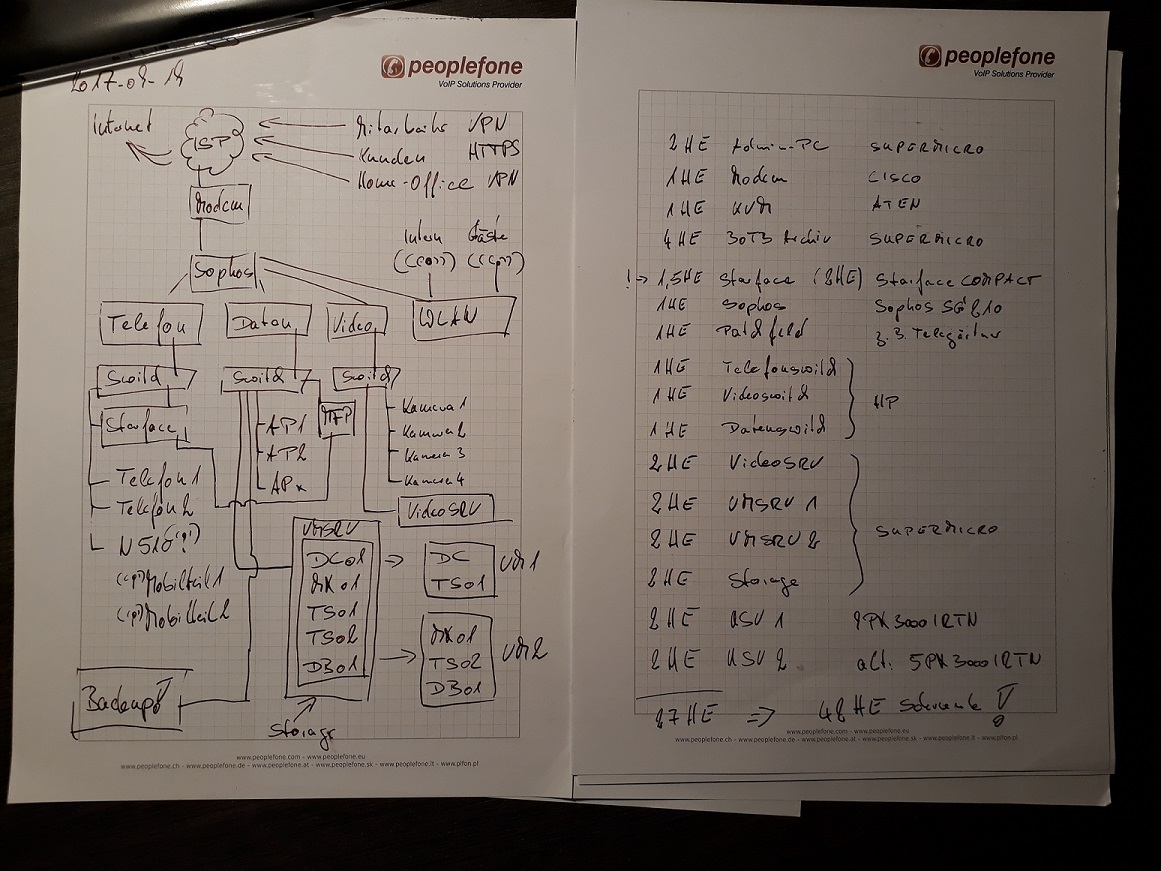 2017-09-19
peoplefone
VoIP Solutions Provider
Internet
ISP
Mitarbeiter VPN
Kunden HTTPS
Home-Office VPN
Modem
Intern Gäste
Sophos
Telefon
Daten
Video
WLAN
Switch
Switch
Switch
Starface
MFP
AP1
AP2
APx
Kamera 1
Kamera 2
Kamera 3
Kamera 4
Telefon 1
Telefon 2
N510
Mobilteil 1
Mobilteil 2
VideoSRV
VMSRV
DC01
MX01
TS01
TS02
DB01
DC
TS01
VM1
MX01
TS02
DB01
VM2
Backup!
Storage
www.peoplefone.com - www.peoplefone.eu
www.peoplefone.ch - www.peoplefone.de - www.peoplefone.at - www.peoplefone.sk - www.peoplefone.it - www.plfon.pl
peoplefone
VoIP Solutions Provider
2HE Admin-PC SUPERMICRO
1HE Modem CISCO
1HE KVM ATEN
4HE 30TB Archiv SUPERMICRO
!→ 1,5HE Starface (2HE) Starface COMPACT
1HE Sophos Sophos SG210
1HE Patchfeld z.B. Telegärtner
1HE Telefonswitch
1HE Videoswitch
HP
1HE Datenswitch
2HE VideoSRV
2HE VMSRV 1
2HE VMSRV 2
SUPERMICRO
2HE Storage
2HE USV 1 9PX3000IRTN
2HE USV 2 alt: 5PX3000IRTN
27HE => 42HE Schrank!
www.peoplefone.com - www.peoplefone.eu
www.peoplefone.ch - www.peoplefone.de - www.peoplefone.at - www.peoplefone.sk - www.peoplefone.it - www.plfon.pl